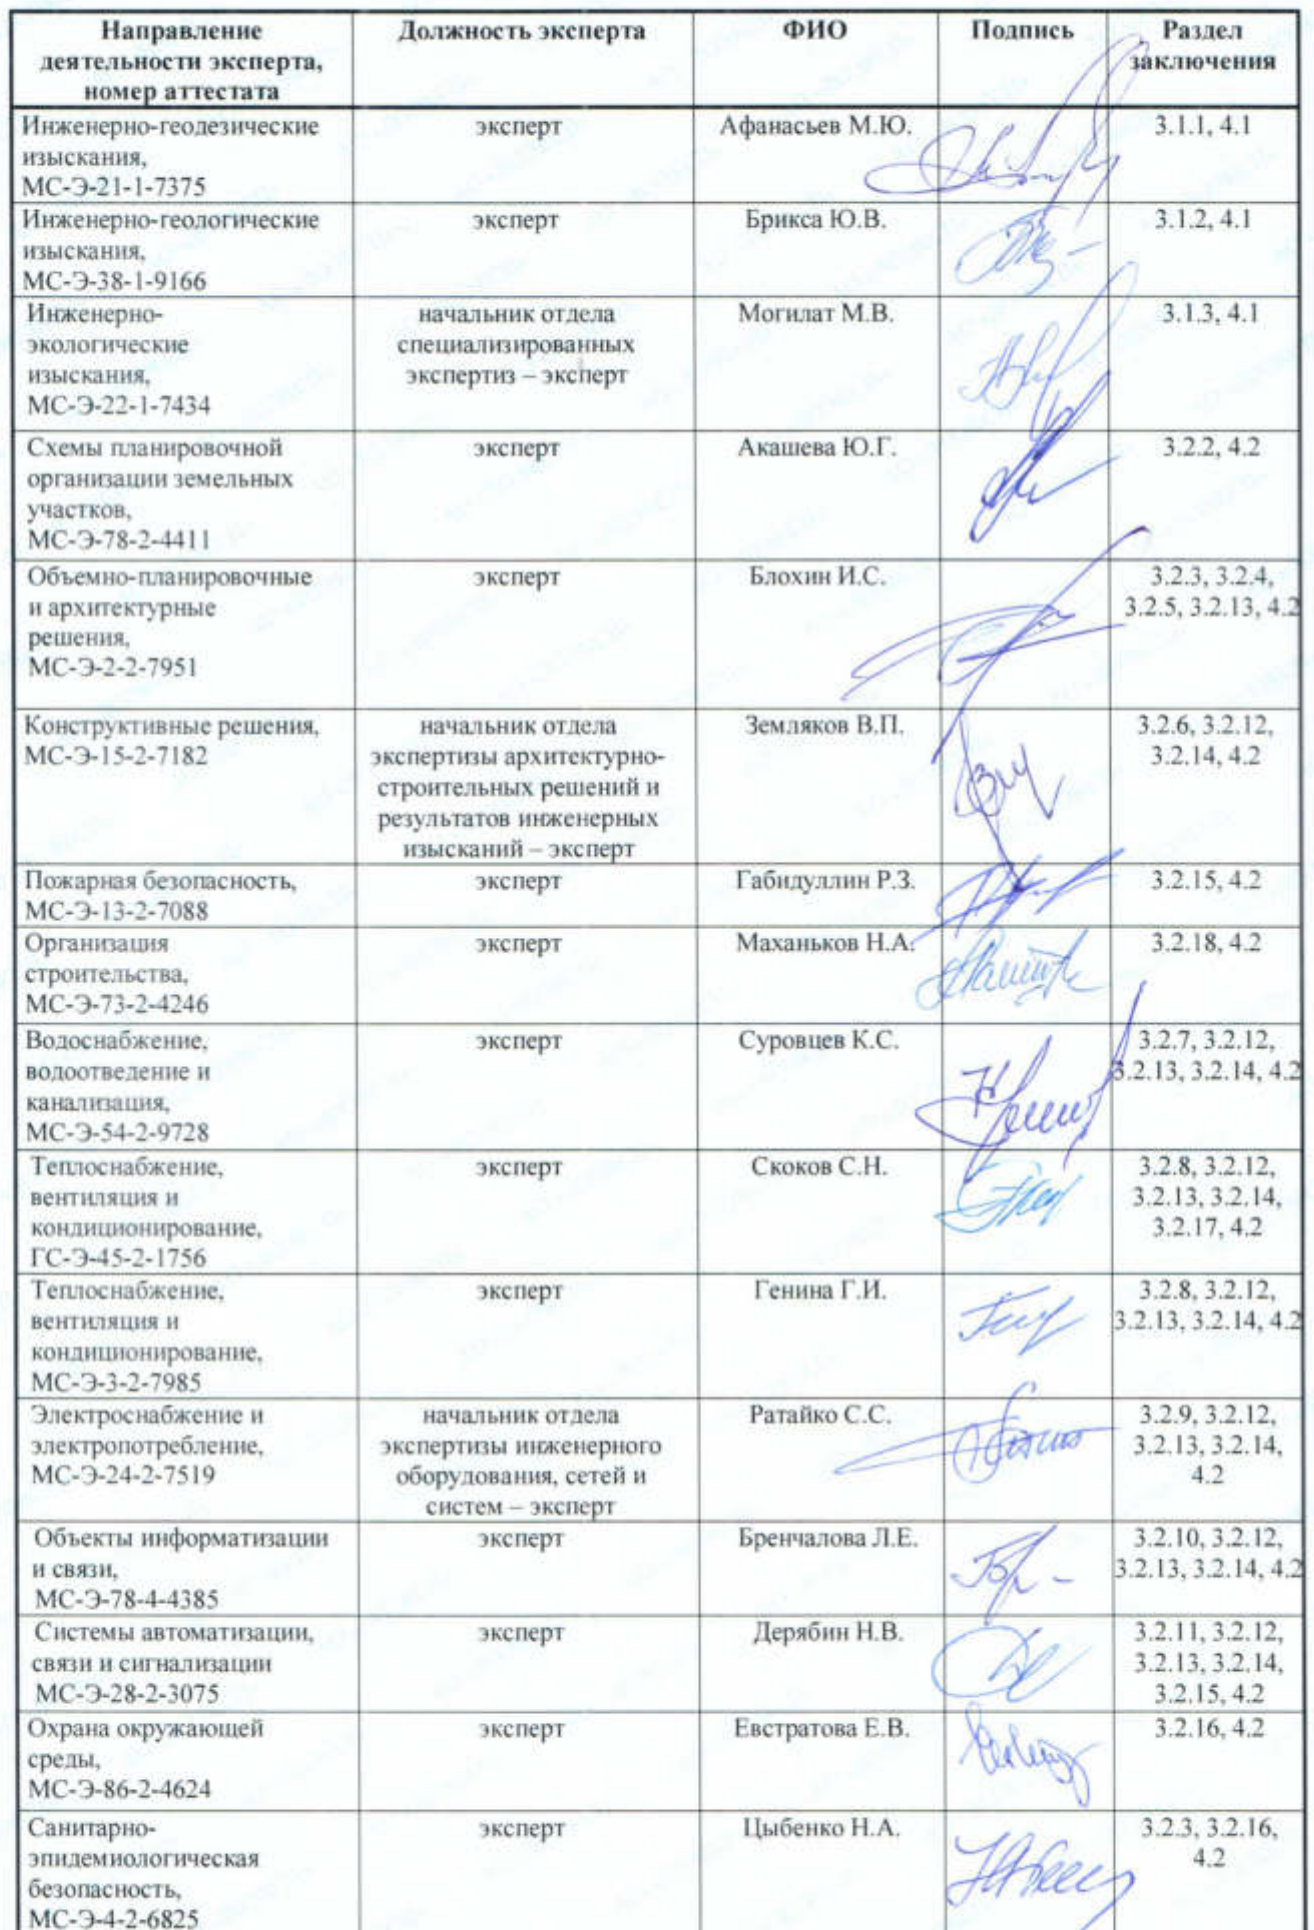 Направление
деятельности эксперта,
номер аттестата
Должность эксперта
ФИО
Подпись
Раздел
заключения
Инженерно-геодезические
изыскания,
МС-Э-21-1-7375
эксперт
Афанасьев М.Ю.
3.1.1, 4.1
Инженерно-геологические
изыскания,
МС-Э-38-1-9166
эксперт
Брикса Ю.В.
3.1.2, 4.1
Инженерно-
экологические
изыскания,
МС-Э-22-1-7434
начальник отдела
специализированных
экспертиз – эксперт
Могилат М.В.
3.1.3, 4.1
Схемы планировочной
организации земельных
участков,
МС-Э-78-2-4411
эксперт
Акашева Ю.Г.
3.2.2, 4.2
Объемно-планировочные
и архитектурные
решения,
МС-Э-2-2-7951
эксперт
Блохин И.С.
3.2.3, 3.2.4,
3.2.5, 3.2.13, 4.2
Конструктивные решения,
МС-Э-15-2-7182
начальник отдела
экспертизы архитектурно-
строительных решений и
результатов инженерных
изысканий – эксперт
Земляков В.П.
3.2.6, 3.2.12,
3.2.14, 4.2
Пожарная безопасность,
МС-Э-13-2-7088
эксперт
Габидуллин Р.З.
3.2.15, 4.2
Организация
строительства,
МС-Э-73-2-4246
эксперт
Маханьков Н.А.
3.2.18, 4.2
Водоснабжение,
водоотведение и
канализация,
МС-Э-54-2-9728
эксперт
Суровцев К.С.
3.2.7, 3.2.12,
3.2.13, 3.2.14, 4.2
Теплоснабжение,
вентиляция и
кондиционирование,
ГС-Э-45-2-1756
эксперт
Скоков С.Н.
3.2.8, 3.2.12,
3.2.13, 3.2.14,
3.2.17, 4.2
Теплоснабжение,
вентиляция и
кондиционирование,
МС-Э-3-2-7985
эксперт
Генина Г.И.
3.2.8, 3.2.12,
3.2.13, 3.2.14, 4.2
Электроснабжение и
электропотребление,
МС-Э-24-2-7519
начальник отдела
экспертизы инженерного
оборудования, сетей и
систем – эксперт
Ратайко С.С.
3.2.9, 3.2.12,
3.2.13, 3.2.14,
4.2
Объекты информатизации
и связи,
МС-Э-78-4-4385
эксперт
Бренчалова Л.Е.
3.2.10, 3.2.12,
3.2.13, 3.2.14, 4.2
Системы автоматизации,
связи и сигнализации
МС-Э-28-2-3075
эксперт
Дерябин Н.В.
3.2.11, 3.2.12,
3.2.13, 3.2.14,
3.2.15, 4.2
Охрана окружающей
среды,
МС-Э-86-2-4624
эксперт
Евстратова Е.В.
3.2.16, 4.2
Санитарно-
эпидемиологическая
безопасность,
МС-Э-4-2-6825
эксперт
Цыбенко Н.А.
3.2.3, 3.2.16,
4.2